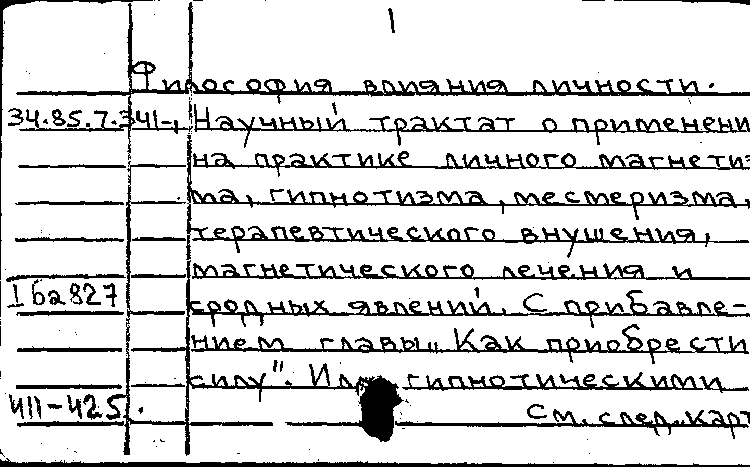 1
Философия влияния личности.
34.85.7.341-, Научный трактат о применени
на практике личного магнетиз
ма, гипнотизма, месмеризма,
терапевтического внушения,
магнетического лечения и
Iба827 сродных явлений. С прибавле-
нием главы „Как приобрести
силу". Илл. гипнотическими
411-425. См. след. карт